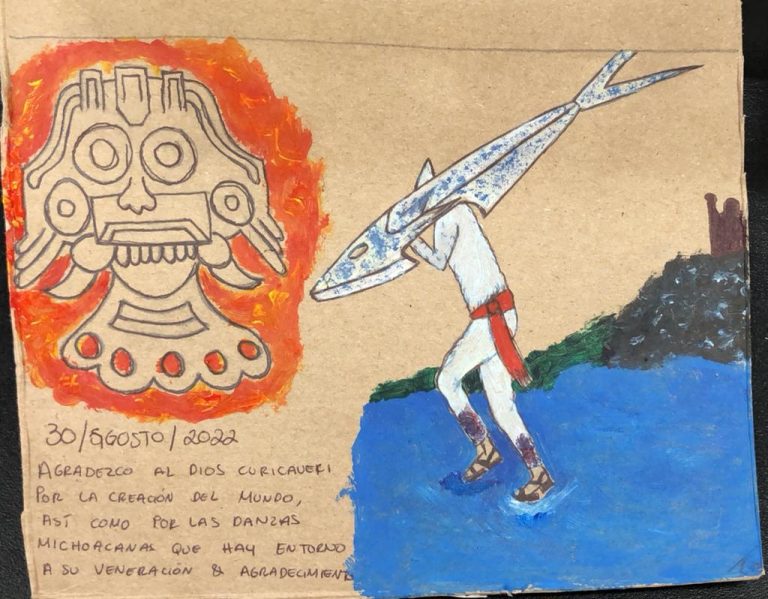 30/AGOSTO/2022
AGRADEZCO AL DIOS CURICAUERI
POR LA CREACIÓN DEL MUNDO,
ASÍ COMO POR LAS DANZAS
MICHOACANAS QUE HAY ENTORNO
A SU VENERACIÓN & AGRADECIMIENTO